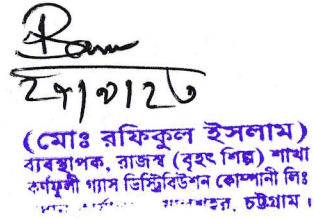 ২৭/৩/২৩
(মোঃ রফিকুল ইসলাম)
ব্যবস্থাপক, রাজস্ব (বৃহৎ শিল্প) শাখা
কর্ণফুলী গ্যাস ডিস্ট্রিবিউশন কোম্পানী লিঃ
চট্টগ্রাম।